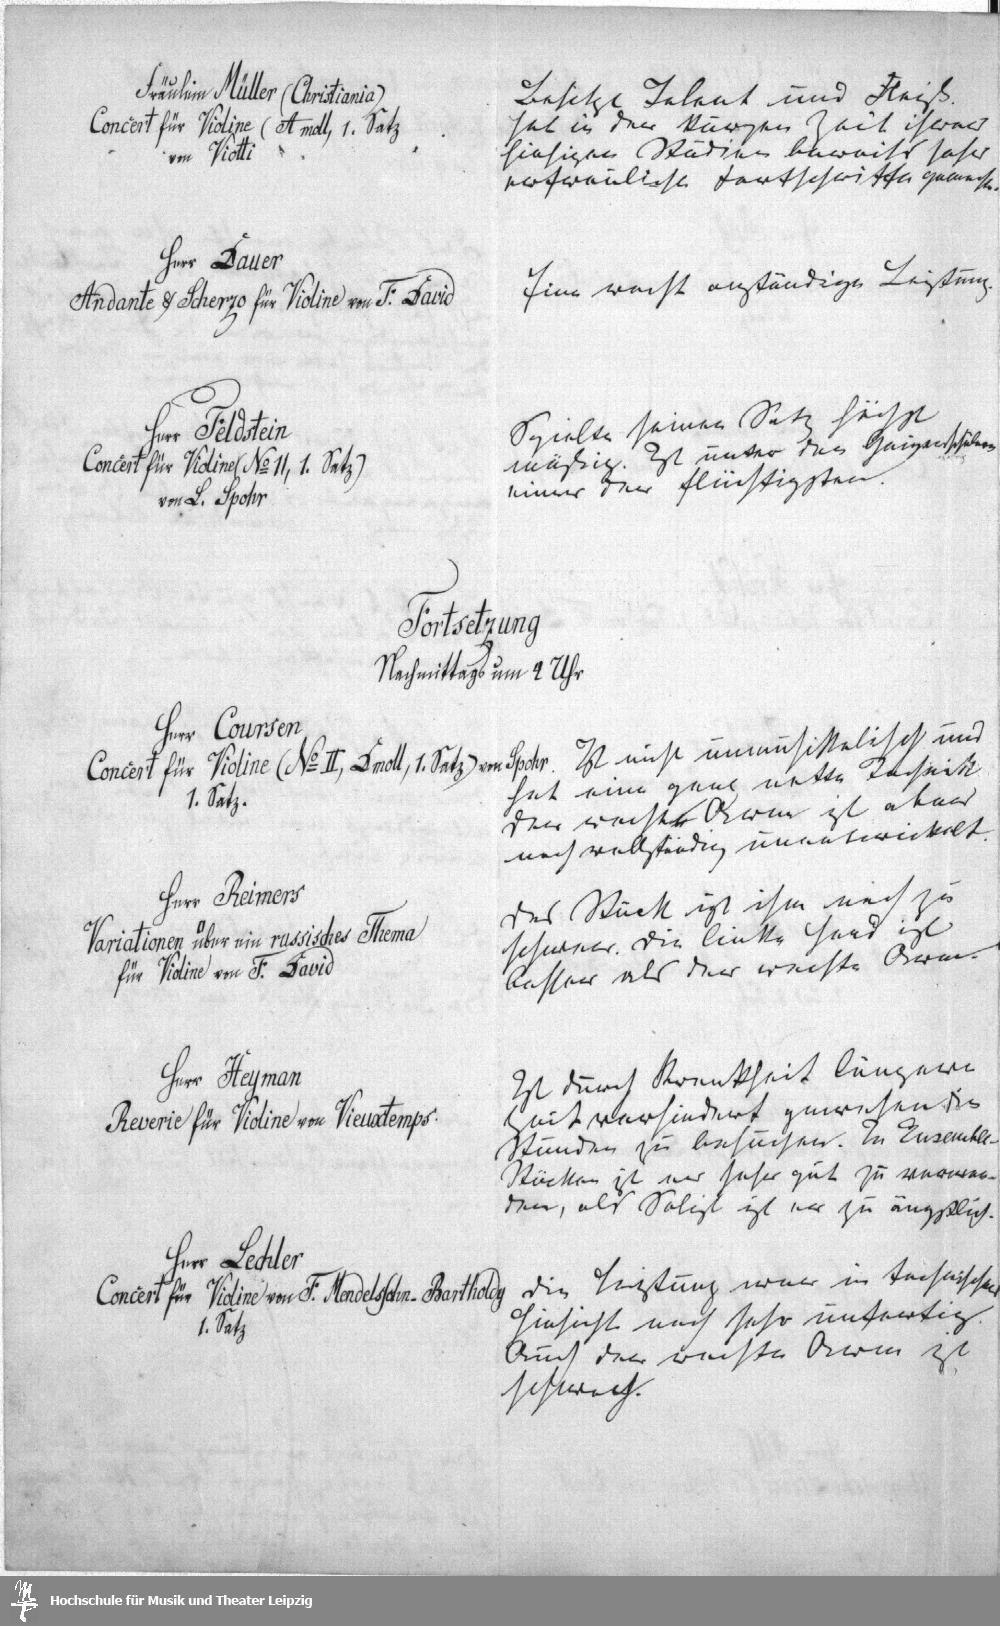 Fräulein Müller (Christiania)
Concert für Violine (A moll, 1. Satz
von Viotti
Besitzt Talent und Fleiß.
hat in der kurzen Zeit ihrer
hiesigen Studien bereits sehr
erfreuliche Fortschritte gemacht.
Herr Bauer
Andante & Scherzo für Violine von F. David
Eine recht anständige Leistung.
Herr Feldstein
Concert für Violine (No 11, 1. Satz)
von L. Spohr
Spielte seinen Satz höchst
mäßig. Ist unter den Geigenschülern
einer der flüchtigsten.
Fortsetzung
Nachmittags um 2 Uhr
Herr Coursen
Concert für Violine (No II, Dmoll, 1. Satz) von Spohr.
1. Satz.
Ist nicht unmusikalisch und
hat eine ganz nette Technik
der rechte Arm ist aber
noch vollständig unentwickelt.
Herr Reimers
Variationen über ein russisches Thema
für Violine von F. David
Das Stück ist ihm noch zu
schwer. Die linke Hand ist
besser als der rechte Arm.
Herr Heyman
Reverie für Violine von Vieuxtemps.
Ist durch Krankheit längere
Zeit verhindert gewesen die
Stunden zu besuchen. In Ensemble-
Stücken ist er sehr gut zu verwen-
den, als Solist ist er zu ängstlich.
Herr Lechler
Concert für Violine von F. Mendelssohn-Bartholdy
1. Satz
Die Leistung war in technischer
Hinsicht noch sehr unfertig.
Auch der rechte Arm ist
schwach.
Hochschule für Musik und Theater Leipzig